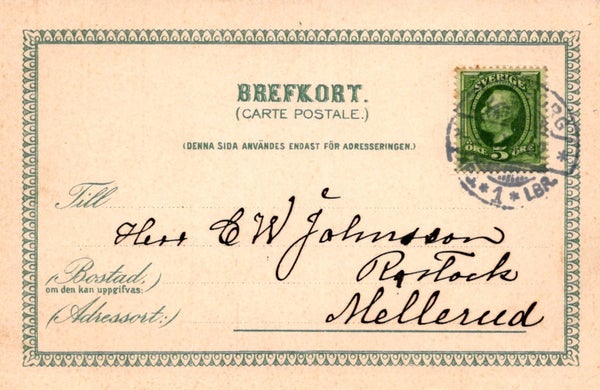 BREFKORT.
(CARTE POSTALE.)
(DENNA SIDA ANVÄNDES ENDAST FÖR ADRESSERINGEN.)
SVERIGE
ÖRE 5 ÖRE
* 1 * LBR. *
Till
Herr E W Johnsson
(Bostad.)
om den kan uppgifvas:
Rostock
(Adressort:)
Mellerud